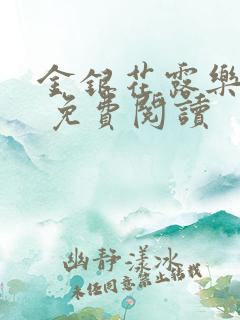 金銀花露樂
免費閱讀
幽靜漾冰
未经同意禁止转载